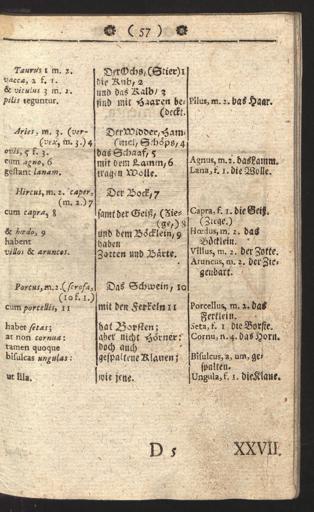 ( 57 )
Taurus 1 m. 2.
vacca, 2 f. 1.
& vitulus 3 m. 2.
pilis teguntur.
Der Ochs, (Stier) 1
die Kuh, 2
und das Kalb, 3
sind mit Haaren be-
(deckt.
Pilus, m. 2. das Haar.
Aries, m. 3. (ver-
(vex, m. 3.) 4
ovis, 5 f. 3.
cum agno, 6
gestant lanam.
Der Widder, Ham-
(mel, Schöps, 4
das Schaaf, 5
mit dem Lamm, 6
tragen Wolle.
Agnus, m. 2. das Lamm.
Lana, f. 1. die Wolle.
Hircus, m. 2. (caper,
(m. 2.) 7
cum capra, 8
& hœdo, 9
habent
villos & aruncos.
Der Bock, 7
samt der Geiß, (Zie-
(ge,) 8
und dem Böcklein, 9
haben
Zotten und Bärte.
Capra, f. 1. die Geiß.
(Ziege.)
Hœdus, m. 2. das
Böcklein.
Villus, m. 2. der Zotte.
Aruncus, m. 2. der Zie-
genbart.
Porcus, m. 2. (scrofa,
(10 f. 1.)
cum porcellis, 11
habet setas;
at non cornua:
tamen quoque
bisulcas ungulas:
ut illa.
Das Schwein, 10
mit den Ferkeln 11
hat Borsten;
aber nicht Hörner:
doch auch
gespaltene Klauen;
wie jene.
Porcellus, m. 2. das
Ferklein.
Seta, f. 1. die Borste.
Cornu, n. 4. das Horn.
Bisulcus, a, um, ge-
spalten.
Ungula, f. 1. die Klaue.
D 5
XXVII.